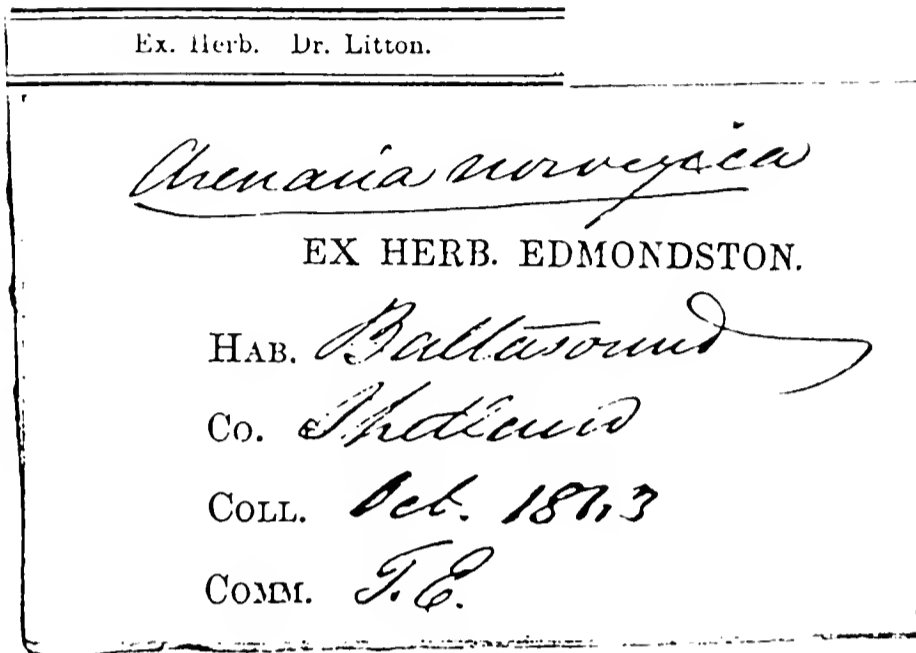 Ex. Herb. Dr. Litton.
Arenaria norvegica
EX HERB. EDMONDSTON.
HAB. Baltasound
Co. Shetland
COLL. Oct. 1843
COMM. T.E.